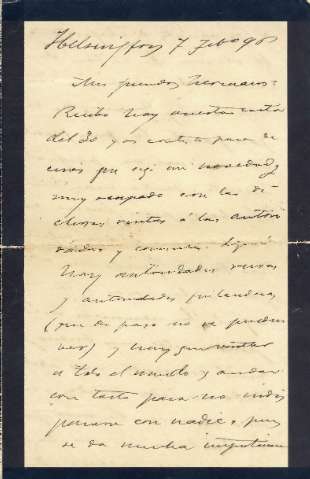 Helsingfors 7 Febo 98
Mis queridos hermanos:
Recibo hoy vuestra carta
del 30 y os contesto para de
ciros que sigo sin novedad y
muy ocupado con las di
chosas visitas á las autori
dades y consules. Aquí
hay autoridades rusas
y autoridades finlandesas
(que de paso no se pueden
ver) y hay que visitar
a todo el mundo y andar
con tacto para no indis
ponerse con nadie, pues
se da mucha importancia